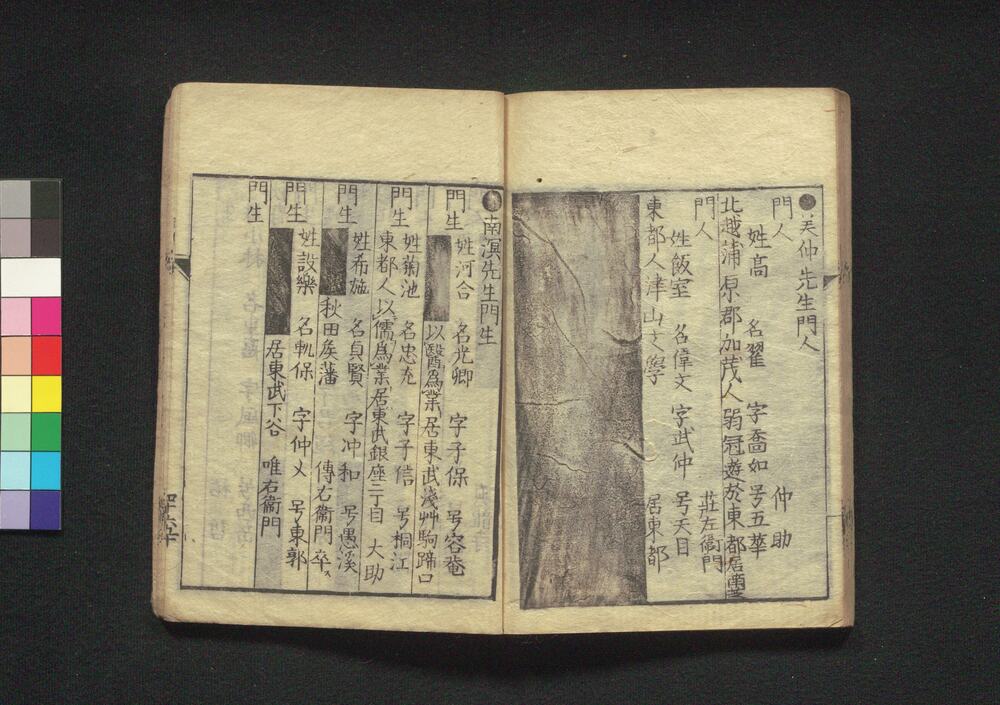 ●关仲先生門人
門人　　仲助
姓高　名翟　字喬如　号五華
北越蒲原郡加茂人弱冠遊於東都居
門人　　莊左衞門
姓飯室　名偉文　字武仲　号天目
東都人津山文學　居東都
●南溟先生門生
門生　姓河合　名光卿　字子保　号容菴
以醫爲業居東武浅艸駒蹄口
門生　姓菊池　名忠充　字子信　号桐江
東都人以儒爲業居東武銀座二丁目　大助
門生　姓希施　名貞賢　字冲和　号愚溪
秋田矦藩　傳右衞門　卒ス
門生　姓設樂　名軌保　字仲乂　号東郭
居東武下谷　唯右衞門
門生